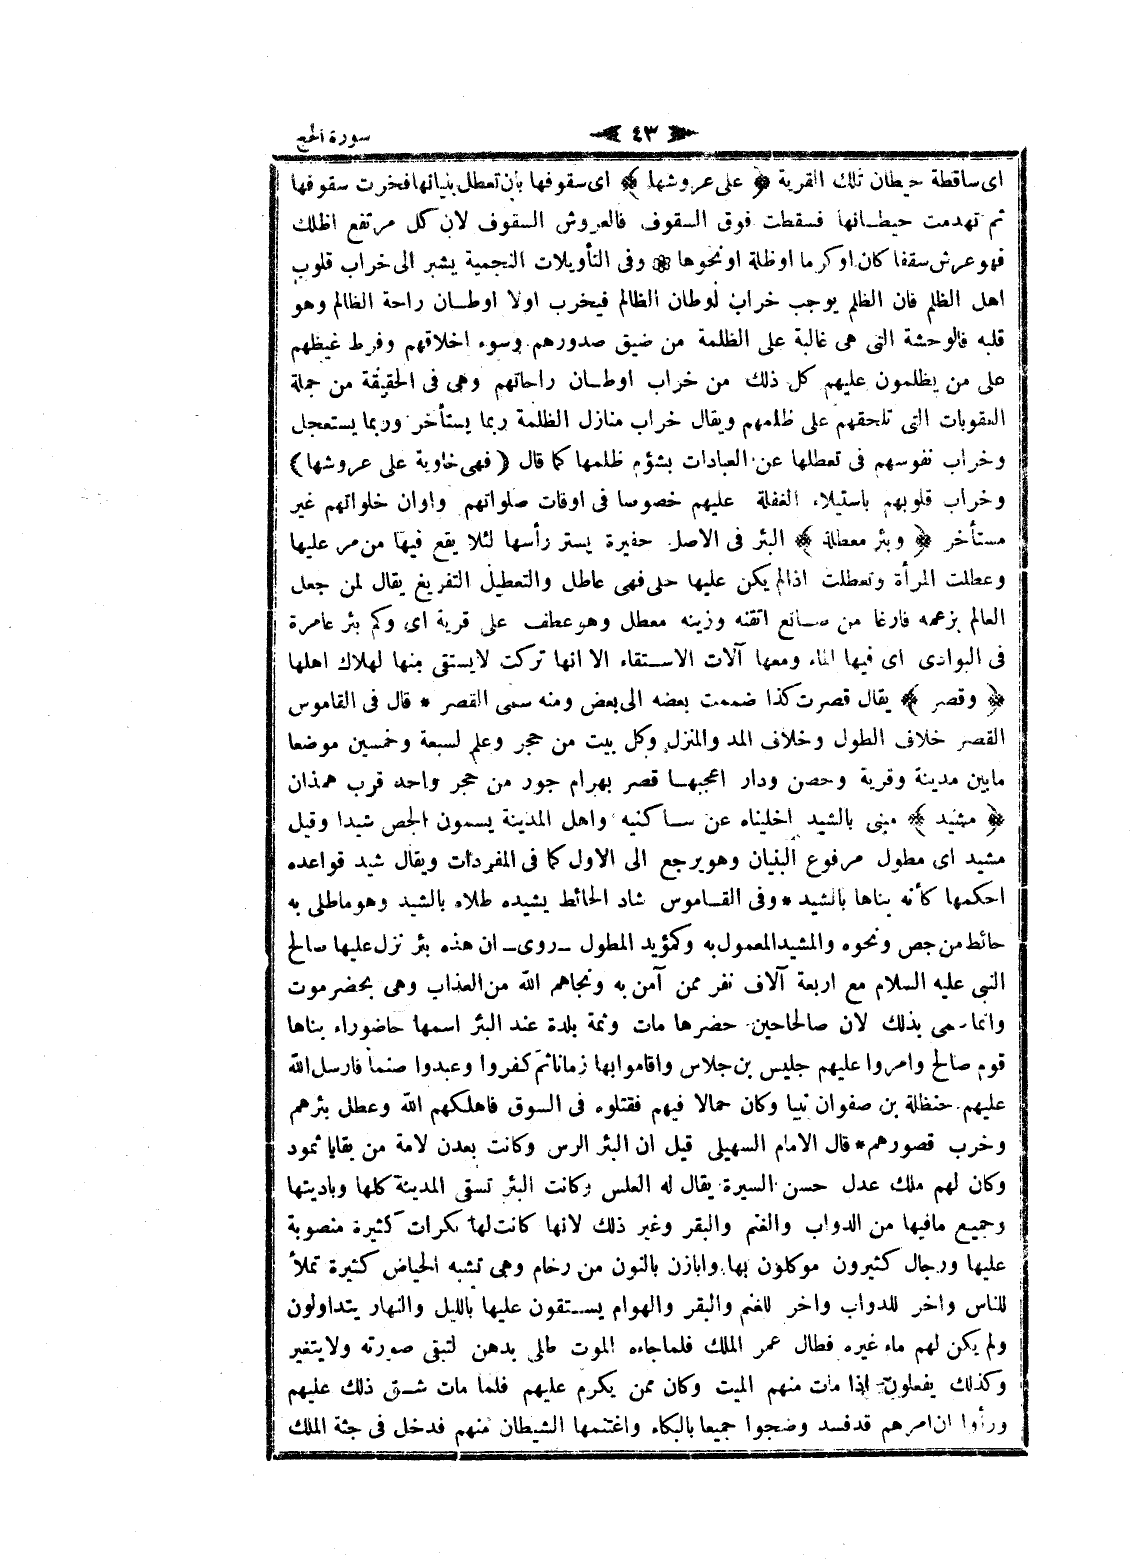 سورة الحج
٤٣
اى ساقطة حيطان تلك القرية ﴿ على عروشها ﴾ اى سقوفها بأن تعطل بنيانها فخرت سقوفها
ثم تهدمت حيطانها فسقطت فوق السقوف فالعروش السقوف لان كل مرتفع اظلك
فهو عرش سقفا كان او كرما او ظلة او نحوها ❁ وفى التأويلات النجمية يشير الى خراب قلوب
اهل الظلم فان الظلم يوجب خراب اوطان الظالم فيخرب اولا اوطان راحة الظالم وهو
قلبه فالوحشة التى هى غالبة على الظلمة من ضيق صدورهم وسوء اخلاقهم وفرط غيظهم
على من يظلمون عليهم كل ذلك من خراب اوطان راحاتهم وهى فى الحقيقة من جملة
العقوبات التى تلحقهم على ظلمهم ويقال خراب منازل الظلمة ربما يستأخر وربما يستعجل
وخراب نفوسهم فى تعطلها عن العبادات بشؤم ظلمها كما قال ( فهى خاوية على عروشها )
وخراب قلوبهم باستيلاء الغفلة عليهم خصوصا فى اوقات صلواتهم واوان خلواتهم غير
مستأخر ﴿ وبئر معطلة ﴾ البئر فى الاصل حفيرة يستر رأسها لئلا يقع فيها من مر عليها
وعطلت المرأة وتعطلت اذالم يكن عليها حلى فهى عاطل والتعطيل التفريغ يقال لمن جعل
العالم بزعمه فارغا من صانع اتقنه وزينه معطل وهو عطف على قرية اى وكم بئر عامرة
فى البوادى اى فيها الماء ومعها آلات الاستقاء الا انها تركت لايستقى منها لهلاك اهلها
﴿ وقصر ﴾ يقال قصرت كذا ضممت بعضه الى بعض ومنه سمى القصر * قال فى القاموس
القصر خلاف الطول وخلاف المد والمنزل وكل بيت من حجر وعلم لسبعة وخمسين موضعا
مابين مدينة وقرية وحصن ودار اعجبها قصر بهرام جور من حجر واحد قرب همذان
﴿ مشيد ﴾ مبنى بالشيد اخليناه عن ساكنيه واهل المدينة يسمون الجص شيدا وقيل
مشيد اى مطول مرفوع البنيان وهو يرجع الى الاول كما فى المفردات ويقال شيد قواعده
احكمها كأنه بناها بالشيد * وفى القاموس شاد الحائط يشيده طلاه بالشيد وهو ماطلى به
حائط من جص ونحوه والمشيد المعمول به وكمؤيد المطول ـ روى ـ ان هذه بئر نزل عليها صالح
النبى عليه السلام مع اربعة آلاف نفر ممن آمن به ونجاهم الله من العذاب وهى بحضرموت
وانما سمى بذلك لان صالحا حين حضرها مات وثمة بلدة عند البئر اسمها حاضوراء بناها
قوم صالح وامروا عليهم جليس بن جلاس واقاموا بها زمانا ثم كفروا وعبدوا صنما فارسل الله
عليهم حنظلة بن صفوان نبيا وكان حمالا فيهم فقتلوه فى السوق فاهلكهم الله وعطل بئرهم
وخرب قصورهم * قال الامام السهيلى قيل ان البئر الرس وكانت بعدن لامة من بقايا ثمود
وكان لهم ملك عدل حسن السيرة يقال له العلس وكانت البئر تسقى المدينة كلها وباديتها
وجميع مافيها من الدواب والغنم والبقر وغير ذلك لانها كانت لها بكرات كثيرة منصوبة
عليها ورجال كثيرون موكلون بها وابازن بالنون من رخام وهى تشبه الحياض كثيرة تملأ
للناس واخر للدواب واخر للغنم والبقر والهوام يستقون عليها بالليل والنهار يتداولون
ولم يكن لهم ماء غيره فطال عمر الملك فلما جاءه الموت طلى بدهن لتبقى صورته ولايتغير
وكذلك يفعلون اذا مات منهم الميت وكان ممن يكرم عليهم فلما مات شق ذلك عليهم
ورأوا ان امرهم قد فسد وضجوا جميعا بالبكاء واغتنمها الشيطان منهم فدخل فى جثة الملك